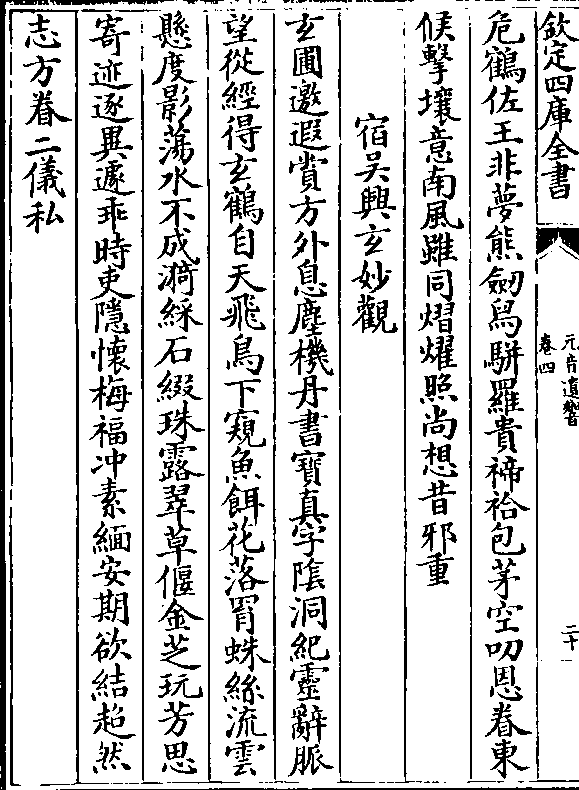 欽定四庫全書
元音遺響
卷四
二十
危鶴佐王非夢熊劒舄駢羅貴禘祫包茅空叨恩眷東
候擊壤意南風雖同熠燿照尚想昔邪重
宿吴興玄妙觀
玄圃邀遐賞方外息塵機丹書寶真字陰洞紀靈辭脈
望從經得玄鶴自天飛鳥下窺魚餌花落罥蛛絲流雲
懸度影蕩水不成漪綵石綴珠露翠草偃金芝玩芳思
寄迹逐異遽乖時吏隱懷梅福冲素緬安期欲結超然
志方眷二儀私